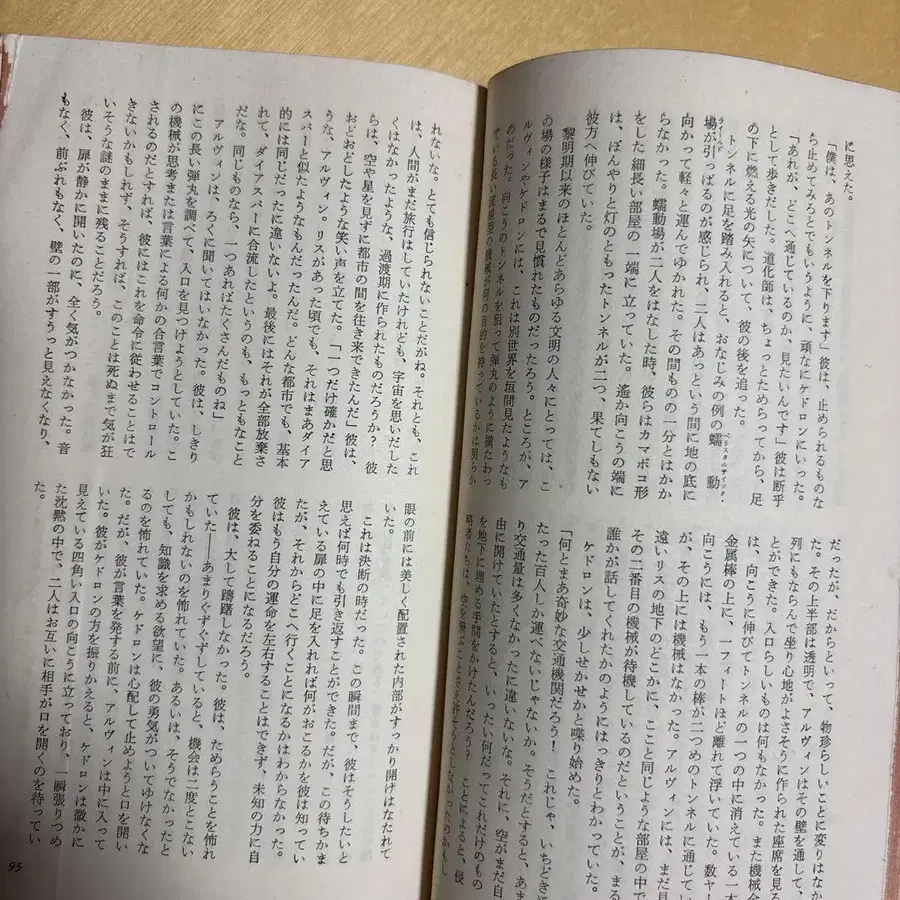 に思えた。
「僕は、あのトンネルを下ります」彼は、止められるものな
ら止めてみろとでもいうように、頑なにケドロンにいった。
「あれが、どこへ通じているのか、見たいんです」彼は断乎
として歩きだした。道化師は、ちょっとためらってから、足
の下に燃える光の矢について、彼の後を追った。
トンネルに足を踏み入れると、おなじみの例の蠕動
ペリスタルティック・
場が引っぱるのが感じられ、二人はあっという間に地の底に
フィールド
向かって軽々と運んでゆかれた。その間ものの一分とはかか
らなかった。蠕動場が二人をはなした時、彼らはカマボコ形
をした細長い部屋の一端に立っていた。遙か向こうの端に
は、ぼんやりと灯のともったトンネルが二つ、果てしもない
彼方へ伸びていた。
黎明期以来のほとんどあらゆる文明の人々にとっては、こ
の場の様子はまるで見慣れたものだったろう。ところが、ア
ルヴィンやケドロンには、これは別世界を垣間見たようなも
のだった。向こうのトンネルを狙って弾丸のように横たわっ
ている長い流線型の機械が何の目的を持っているかは明らか
だったが、だからといって、物珍らしいことに変りはなか
た。その上半部は透明で、アルヴィンはその壁を通して、
列にもならんで坐り心地がよさそうに作られた座席を見る
とができた。入口らしいものは何もなかった。また機械全
は、向こうに伸びてトンネルの一つの中に消えている一本
金属棒の上に、一フィートほど離れて浮いていた。数ヤー
向こうには、もう一本の棒が二つめのトンネルに通じてい
が、その上には機械はなかった。アルヴィンには、まだ見
遠いリスの地下のどこかに、ここと同じような部屋の中で
その二番目の機械が待機しているのだということが、まる
誰かが話してくれたかのようにはっきりとわかっていた。
ケドロンは、少しせかせかと喋り始めた。
「何とまあ奇妙な交通機関だろう！　これじゃ、いちどき
たった百人しか運べないじゃないか。そうだとすると、あま
り交通量は多くなかったに違いないな。それに、空がまだ自
由に開けていたとすると、いったい何だってこれだけのもの
を地下に埋める手間をかけたんだろう？　ことによると、侵
略者たちは、空を飛ぶことさえ許そうとしなかったのかもし
れないな。とても信じられないことだがね。それとも、これ
は、人間がまだ旅行はしていたけれども、宇宙を思いだした
くはなかったような、過渡期に作られたものだろうか？　彼
らは、空や星を見ずに都市の間を往き来できたんだ」彼は、
おどおどしたような笑い声を立てた。「一つだけ確かだと思
うな、アルヴィン。リスがあった頃でも、それはまあダイア
スパーと似たようなもんだったんだ。どんな都市でも、基本
的には同じだったに違いないよ。最後にはそれが全部放棄さ
れて、ダイアスパーに合流したというのも、もっともなこと
だな。同じものなら、一つあればたくさんだものね」
アルヴィンは、ろくに聞いてはいなかった。彼は、しきり
にこの長い弾丸を調べて、入口を見つけようとしていた。こ
の機械が思考または言葉による何かの合言葉でコントロール
されるのだとすれば、彼にはこれを命令に従わせることはで
きないかもしれず、そうすれば、このことは死ぬまで気が狂
いそうな謎のままに残ることだろう。
彼は、扉が静かに開いたのに、全く気がつかなかった。音
もなく、前ぶれもなく、壁の一部がすうっと見えなくなり、
眼の前には美しく配置された内部がすっかり開けはなたれて
いた。
これは決断の時だった。この瞬間まで、彼はそうしたいと
思えば何時でも引き返すことができた。だが、この待ちかま
えている扉の中に足を入れれば何がおこるかを彼は知ってい
たが、それからどこへ行くことになるかはわからなかった。
彼はもう自分の運命を左右することはできず、未知の力に自
分を委ねることになるだろう。
彼は、大して躊躇しなかった。彼は、ためらうことを怖れ
ていた――あまりぐずぐずしていると、機会は二度とこない
かもしれないのを怖れていた。あるいは、そうでなかったと
しても、知識を求める欲望に、彼の勇気がついてゆけなくな
るのを怖れていた。ケドロンは心配して止めようと口を開い
た。だが、彼が言葉を発する前に、アルヴィンは中に入って
いった。彼がケドロンの方を振りかえると、ケドロンは微かに
見えている四角い入口の向こうに立っており、一瞬張りつめ
た沈黙の中で、二人はお互いに相手が口を開くのを待ってい
た。
95